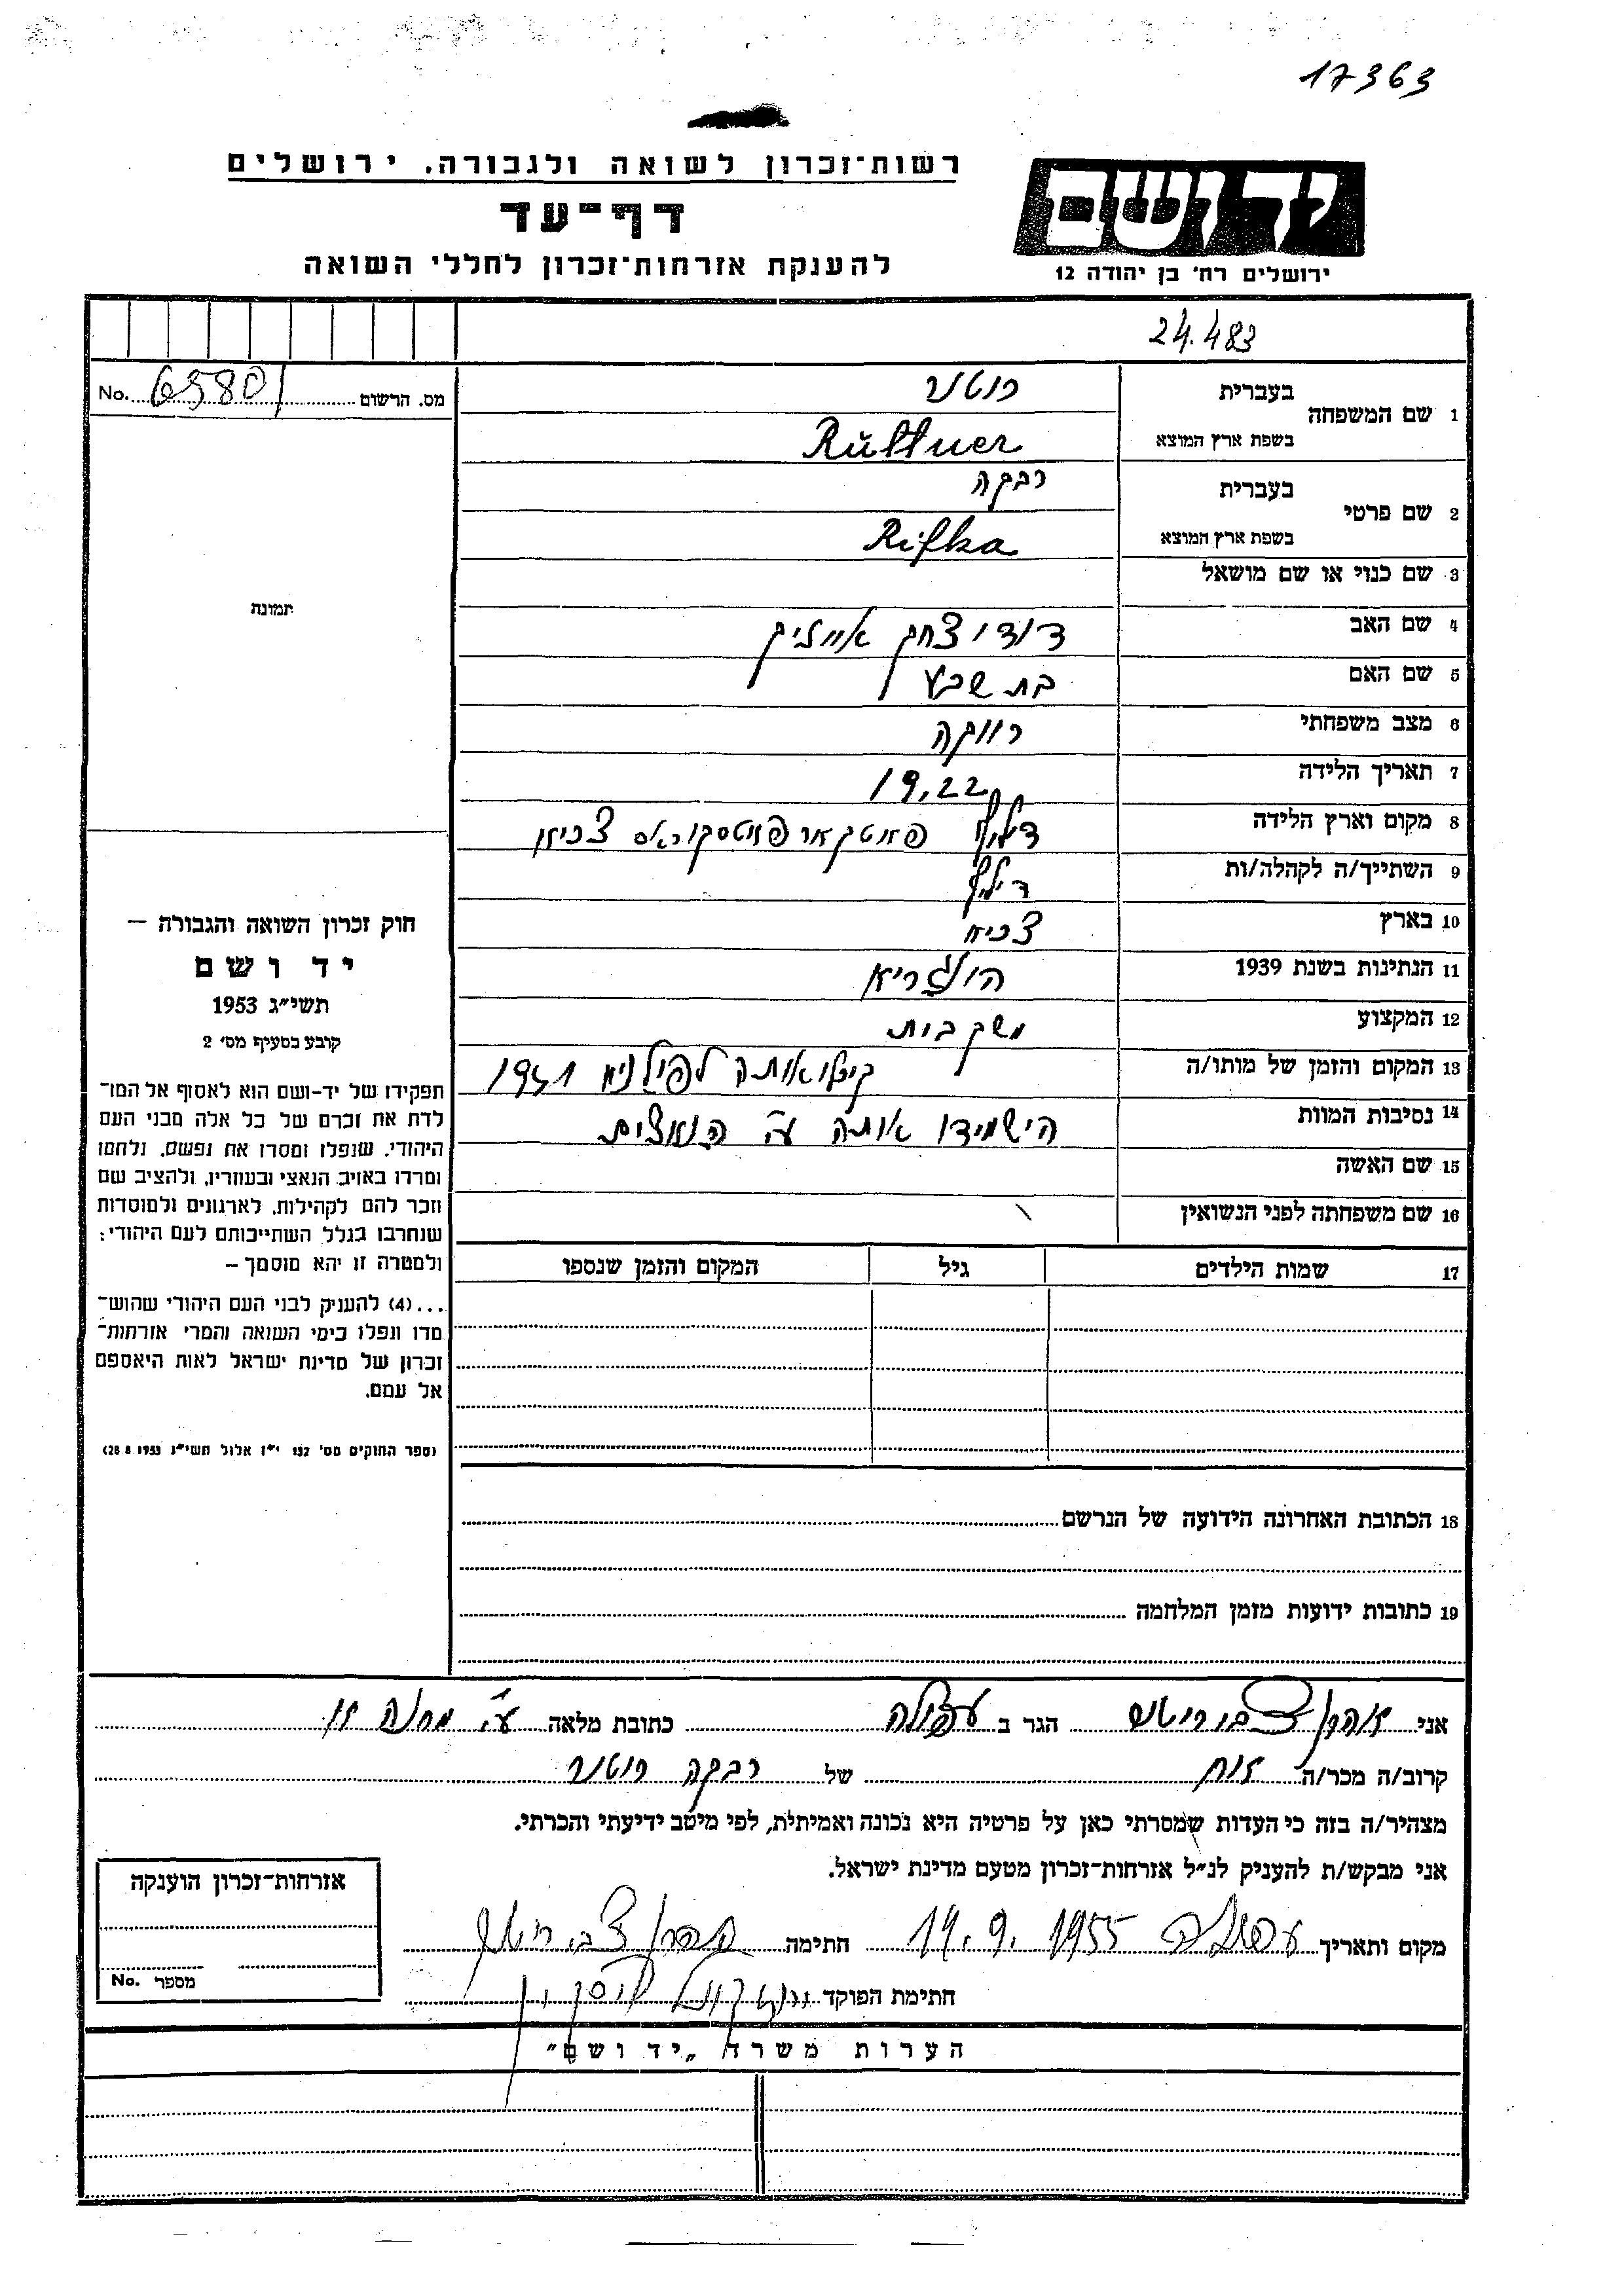 17363
רשות־זכרון לשואה ולגבורה, ירושלים
דף־עד
להענקת אזרחות־זכרון לחללי השואה
ידושם
ירושלים רח' בן יהודה 12
24.483
מס. הרשום 65801 No.
1 שם המשפחה בעברית רוטנר
בשפת ארץ המוצא Rüttner
2 שם פרטי בעברית רבקה
בשפת ארץ המוצא Rifka
3 שם כנוי או שם מושאל
4 שם האב דוד יצחק אייזיק
5 שם האם בת שבע
6 מצב משפחתי רווקה
7 תאריך הלידה 19,22
8 מקום וארץ הלידה
9 השתייך/ה לקהלה/ות
10 בארץ
11 הנתינות בשנת 1939 הונגריא
12 המקצוע משק בית
13 המקום והזמן של מותו/ה 1941
14 נסיבות המוות הישמידו אותה ע"י הנאצים
15 שם האשה
16 שם משפחתה לפני הנשואין
17 שמות הילדים גיל המקום והזמן שנספו
18 הכתובת האחרונה הידועה של הנרשם
19 כתובות ידועות מזמן המלחמה
תמונה
חוק זכרון השואה והגבורה —
יד ושם
תשי״ג 1953
קובע בסעיף מס' 2
תפקידו של יד-ושם הוא לאסוף אל המו־
לדת את זכרם של כל אלה מבני העם
היהודי, שנפלו ומסרו את נפשם, נלחמו
ומרדו באויב הנאצי ובעוזריו, ולהציב שם
וזכר להם לקהילות, לארגונים ולמוסדות
שנחרבו בגלל השתייכותם לעם היהודי:
ולמטרה זו יהא מוסמך —
...(4) להעניק לבני העם היהודי שהוש־
מדו ונפלו בימי השואה והמרי אזרחות־
זכרון של מדינת ישראל לאות היאספם
אל עמם.
(ספר החוקים מס' 132 י״ז אלול תשי״ג 28.8.1953)
אני אהרן צבי הגר ב עפולה כתובת מלאה
קרוב/ה מכר/ה אח של רבקה רוטנר
מצהיר/ה בזה כי העדות שמסרתי כאן על פרטיה היא נכונה ואמיתית, לפי מיטב ידיעתי והכרתי.
אני מבקש/ת להעניק לנ״ל אזרחות-זכרון מטעם מדינת ישראל.
מקום ותאריך עפולה 14.9.1955 חתימה
חתימת הפוקד
אזרחות־זכרון הוענקה
מספר No.
הערות משרד „יד ושם״